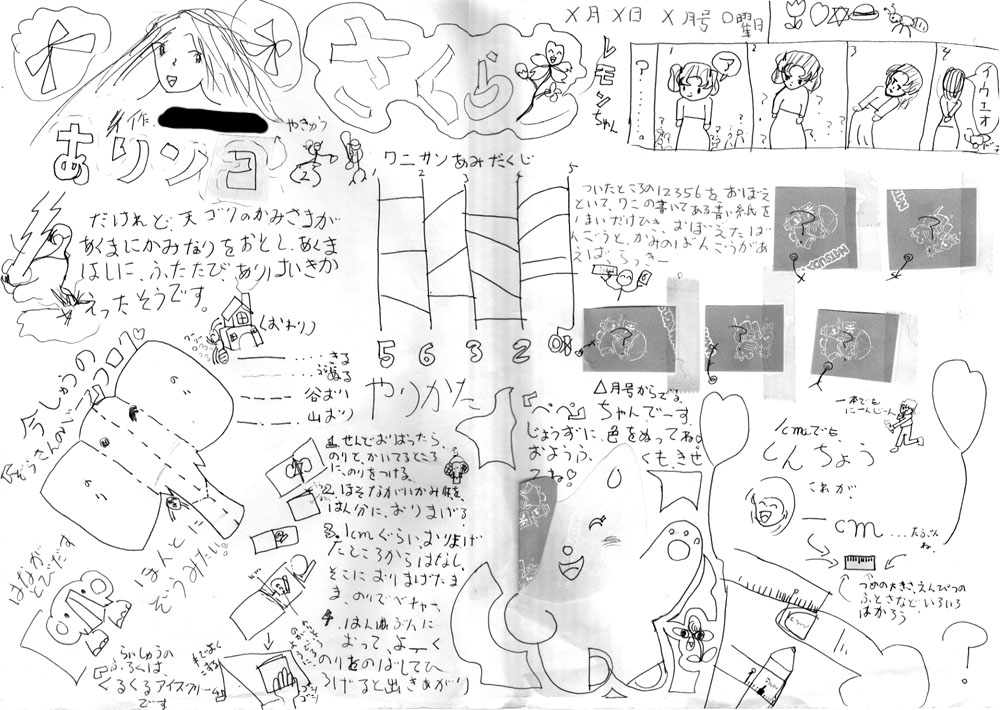 さくら
×月×日 ×月号 ○曜日
レモンちゃん
1
2
3
4
?
ア
イウエオ
作
やきかう
ありンコ
(2)
だけれど、天ゴクのかみさまが
あくまにかみなりをおとし、あくま
はしに、ふたたび、ありはいきか
えったそうです。
(おわり)
ワニサンあみだくじ
1 2 3 4 5
5 6 3 2 1
ついたところの12356を、おぼえ
といて、ワニの書いてある青い紙を
1まいだけひき、おぼえたば
んごうと、かみのばんごうがあ
えば、らっきー
今しゅうのフロク
ぞうさんのい
きる
ぬる
谷おり
山おり
ほんとに
ぞうみたい。
はなが
とびだす
らいしゅうの
ふろくは、
くるくるアイスクリーム
です
やりかた
1. せんでおりおったら、
のりと、かいてるところ
に、のりをつける。
2. ほそながいかみを、
はん分に、おりまげる。
3. 1cmぐらい、おりまげ
たところからはなし、
そこにおりまげたま
ま、のりでペチャー。
4. はんぶんに
おって、よーく
のりをのばしてひ
ろげると出きあがり
△月号からでる。
「ペペン」
ちゃんでーす。
じょうずに、色をぬってね。
おようふくも、きせ
てね!
一本でも
にーんじーん
1cmでも、
とんちょう
これが、
一cm
…たぶん
ね。
つめの大きさ、えんぴつの
ふとさなど、いろいろ
はかろう
?